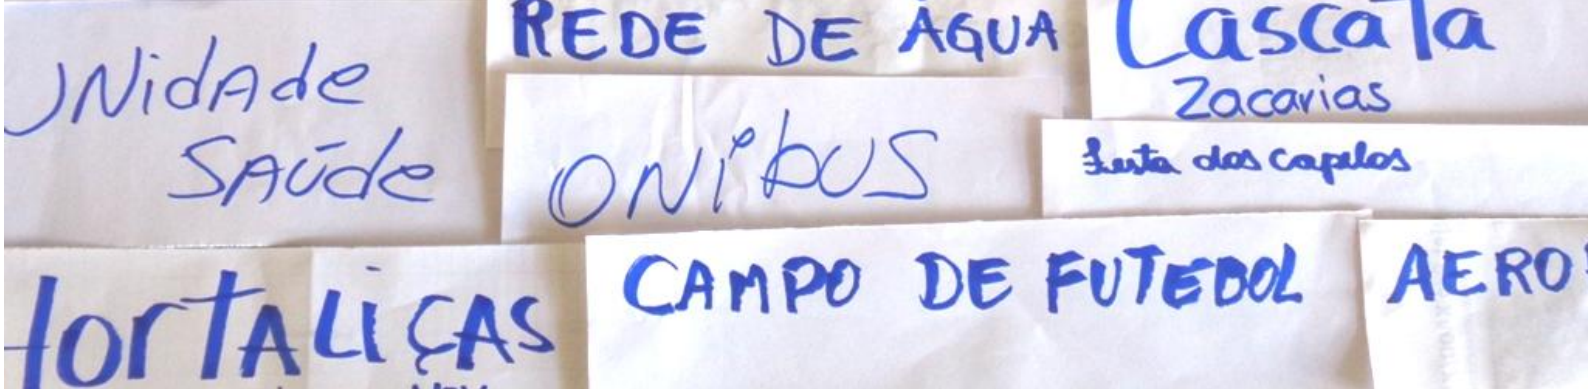 UNidAde
SAÚde
REDE DE ÁGUA
Cascata
Zacarias
ONibUS
festa dos capelos
HorTALiÇAS
CAMPO DE FUTEBOL
AERO